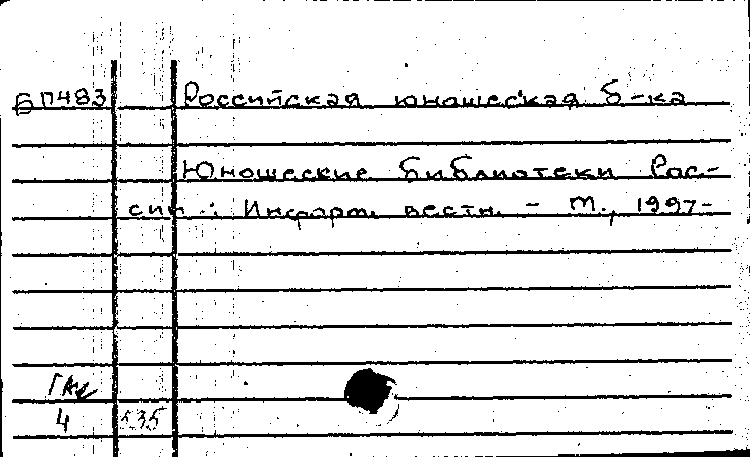 БП483 Российская юношеская б-ка
Юношеские библиотеки Рос-
сии : Информ. вестн. - М., 1997-
4 535